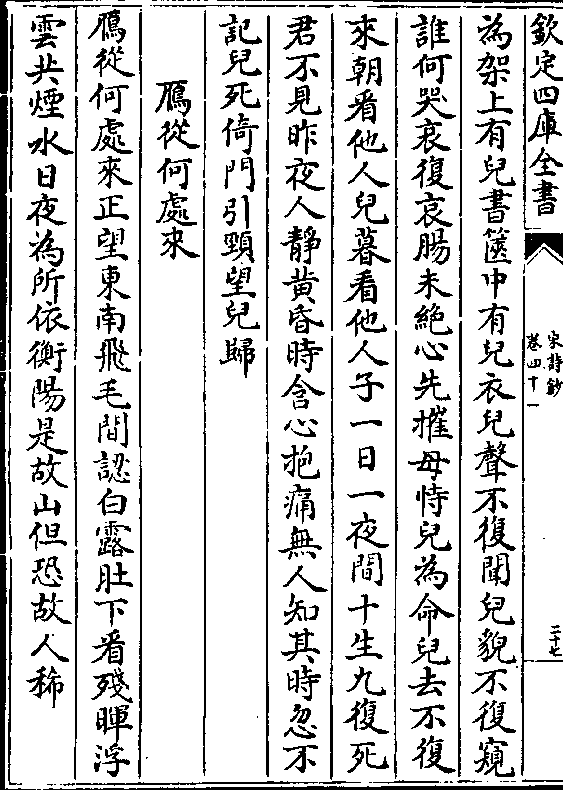 欽定四庫全書
宋詩鈔
卷四十一
二十七
為架上有兒書篋中有兒衣兒聲不復聞兒貌不復窺
誰何哭哀復哀腸未絶心先摧母恃兒為命兒去不復
來朝看他人兒暮看他人子一日一夜間十生九復死
君不見昨夜人靜黄昏時含心抱痛無人知其時忽不
記兒死倚門引頸望兒歸
鴈從何處來
鴈從何處來正望東南飛毛間認白露肚下看殘暉浮
雲共煙水日夜為所依衡陽是故山但恐故人稀